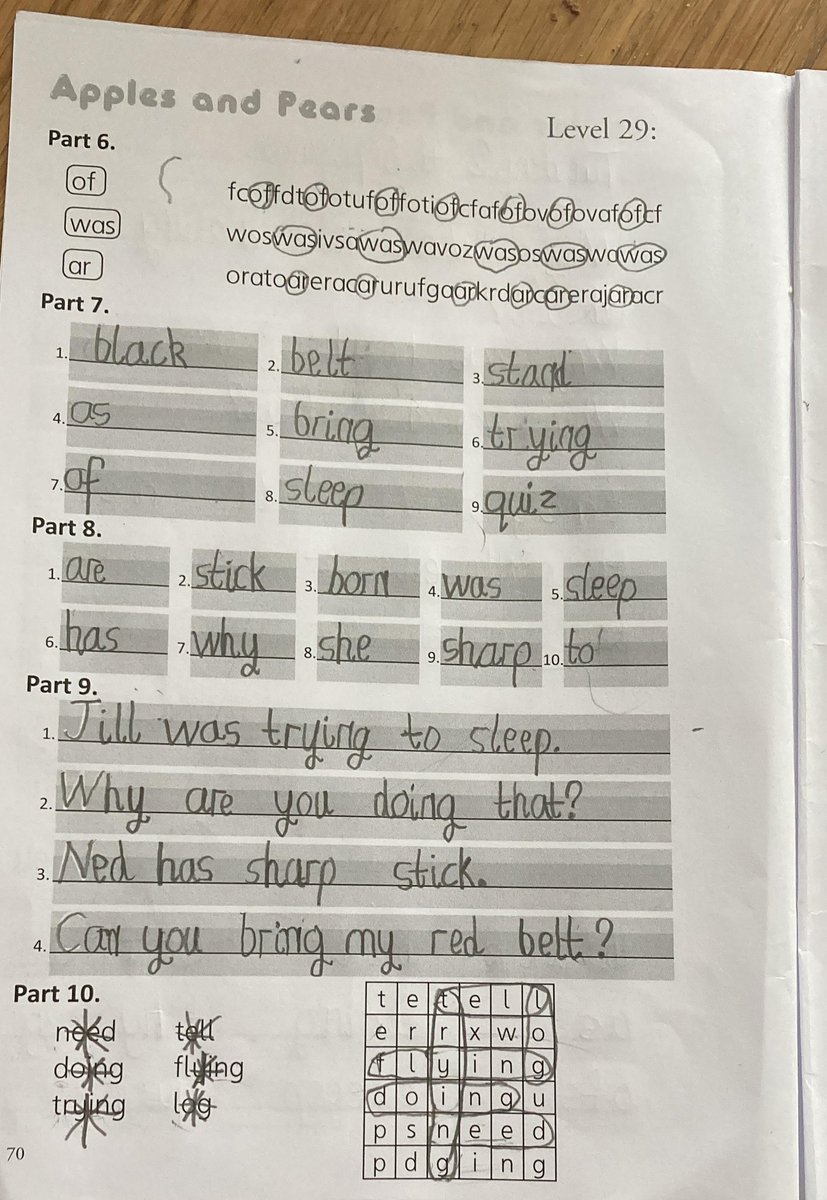 Apples and Pears
Level 29:
Part 6.
of
was
ar
fcoffdtofotufoffotiofcfafofbvofovafofcf
woswasivsawaswavozwasoswaswawas
oratoareracarurufgaarkrdarcarerajaracr
Part 7.
1. black 2. belt 3. stand
4. as 5. bring 6. trying
7. of 8. sleep 9. quiz
Part 8.
1. are 2. stick 3. born 4. was 5. sleep
6. has 7. why 8. she 9. sharp 10. to
Part 9.
1. Jill was trying to sleep.
2. Why are you doing that?
3. Ned has sharp stick.
4. Can you bring my red belt?
Part 10.
need tell
doing flying
trying log
t e t e l l
e r r x w o
f l y i n g
d o i n g u
p s n e e d
p d g i n g
70